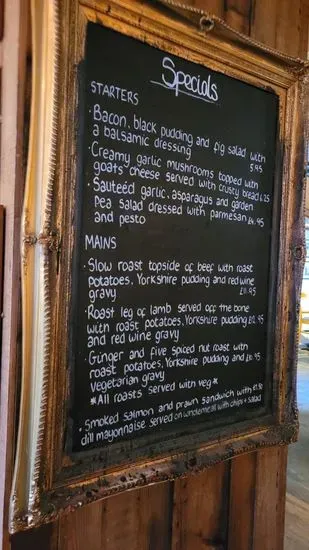 Specials
STARTERS
· Bacon, black pudding and fig salad with
a balsamic dressing 5.95
· Creamy garlic mushrooms topped with
goats cheese served with crusty bread 6.25
· Sauteéd garlic, asparagus and garden
pea salad dressed with parmesan £6.95
and pesto
MAINS
· Slow roast topside of beef with roast
potatoes, Yorkshire pudding and red wine
gravy £11.95
· Roast leg of lamb served off the bone
with roast potatoes, Yorkshire pudding £12.95
and red wine gravy
· Ginger and five spiced nut roast with
roast potatoes, Yorkshire pudding and £10.95
vegetarian gravy
*All roasts served with veg*
· Smoked salmon and prawn sandwich with
dill mayonnaise served on wholemeal with chips + salad